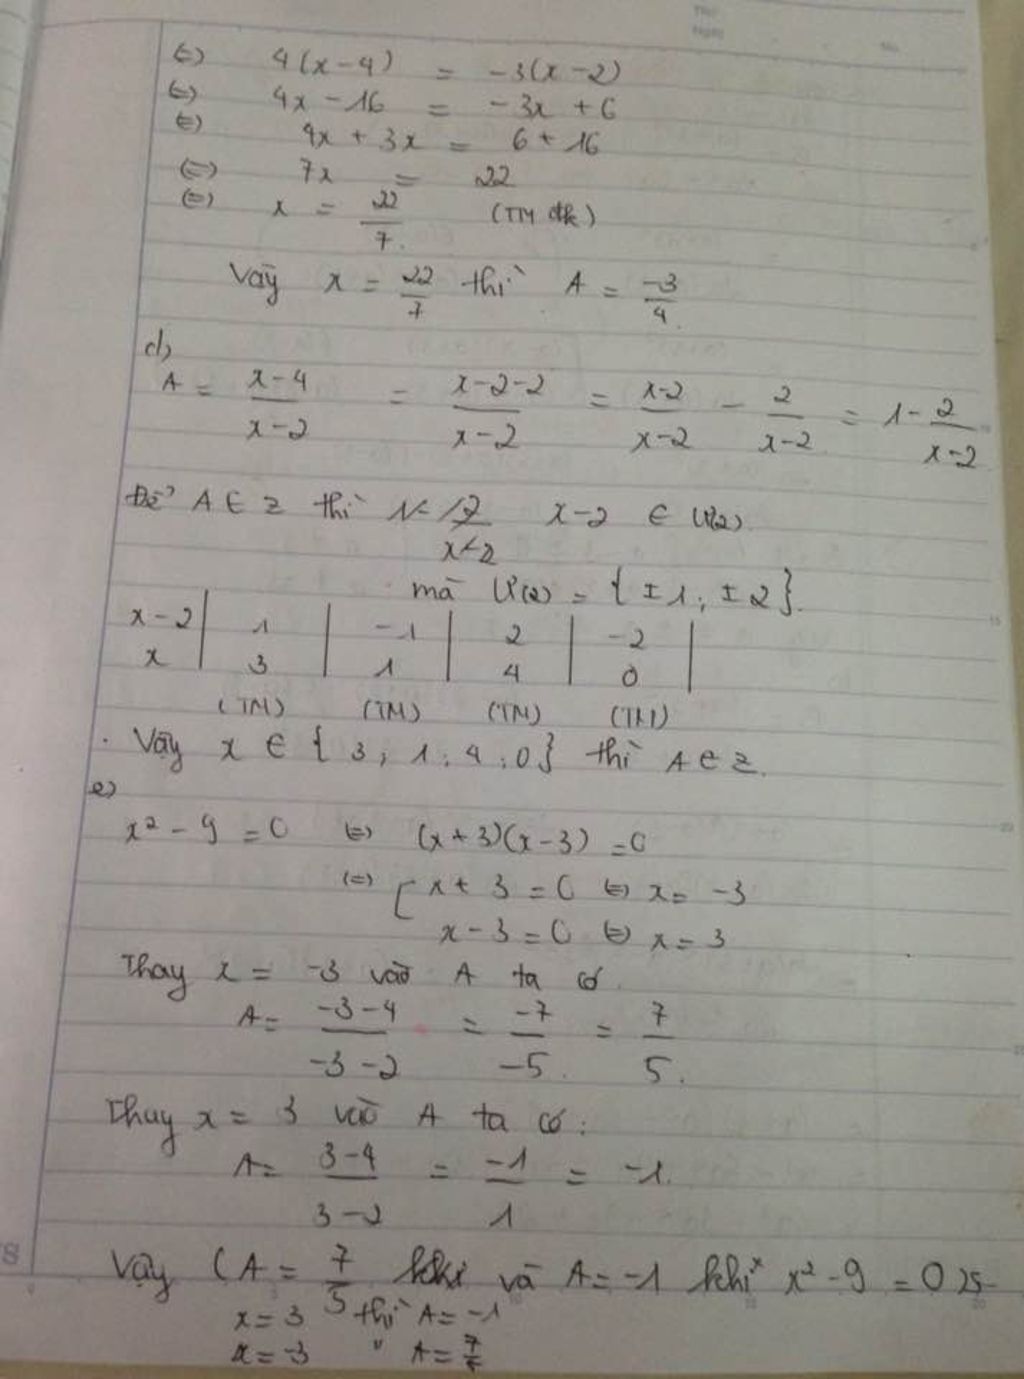 ⇔ 4(x-4) = -3(x-2)
⇔ 4x-16 = -3x+6
⇔ 4x+3x = 6+16
⇔ 7x = 22
⇔ x = 22/7. (TM đk)
Vậy x = 22/7 thì A = -3/4.
d)
A = x-4/x-2 = x-2-2/x-2 = x-2/x-2 - 2/x-2 = 1-2/x-2
Để A ∈ Z thì x-2 ∈ Ư(2)
mà Ư(2) = {±1; ±2}.
x-2 | 1 | -1 | 2 | -2 |
x | 3 | 1 | 4 | 0 |
(TM) (TM) (TM) (TM)
Vậy x ∈ {3; 1; 4; 0} thì A ∈ Z.
e)
x²-9=0 ⇔ (x+3)(x-3)=0
⇔ [x+3=0 ⇔ x=-3
x-3=0 ⇔ x=3
Thay x = -3 vào A ta có
A = -3-4/-3-2 = -7/-5. = 7/5.
Thay x = 3 vào A ta có:
A = 3-4/3-2 = -1/1 = -1.
Vậy (A = 7/5 khi và A=-1 khi x²-9=0
x=3 thì A=-1
x=-3 " A=7/5